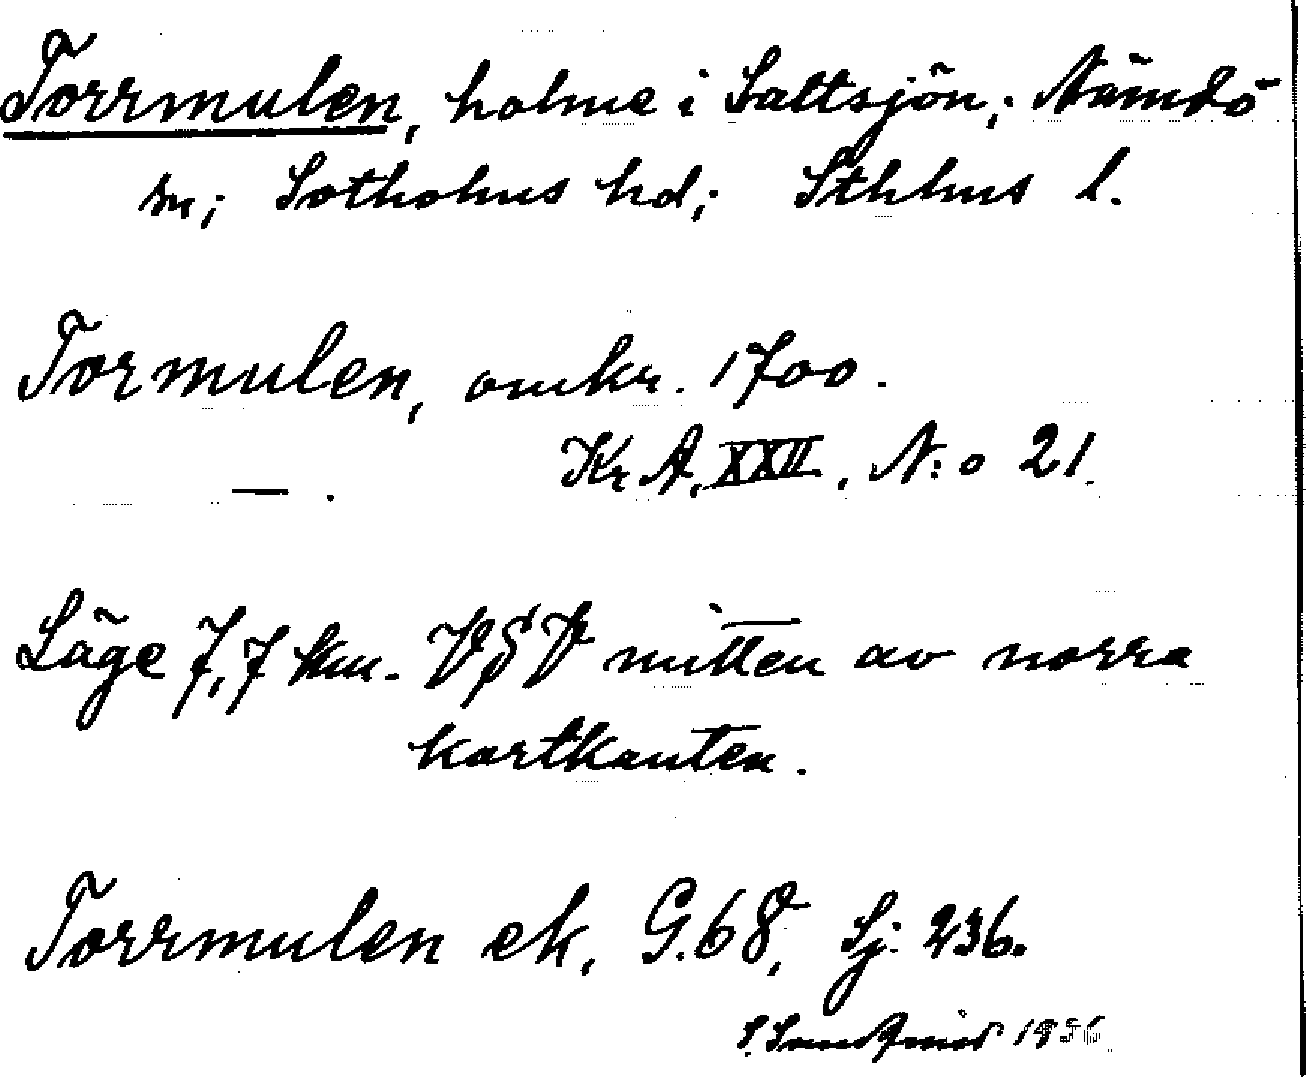 Torrmulen, holme i Saltsjön; Nämdö
sn; Sotholms hd; Sthlms l.
Tormulen, omkr. 1700.
— . Kr A, XXII, N:o 21.
Läge 7,7 km. VSV mitten av norra
kartkanten.
Torrmulen ek, G.68, Sj: 236.
1936